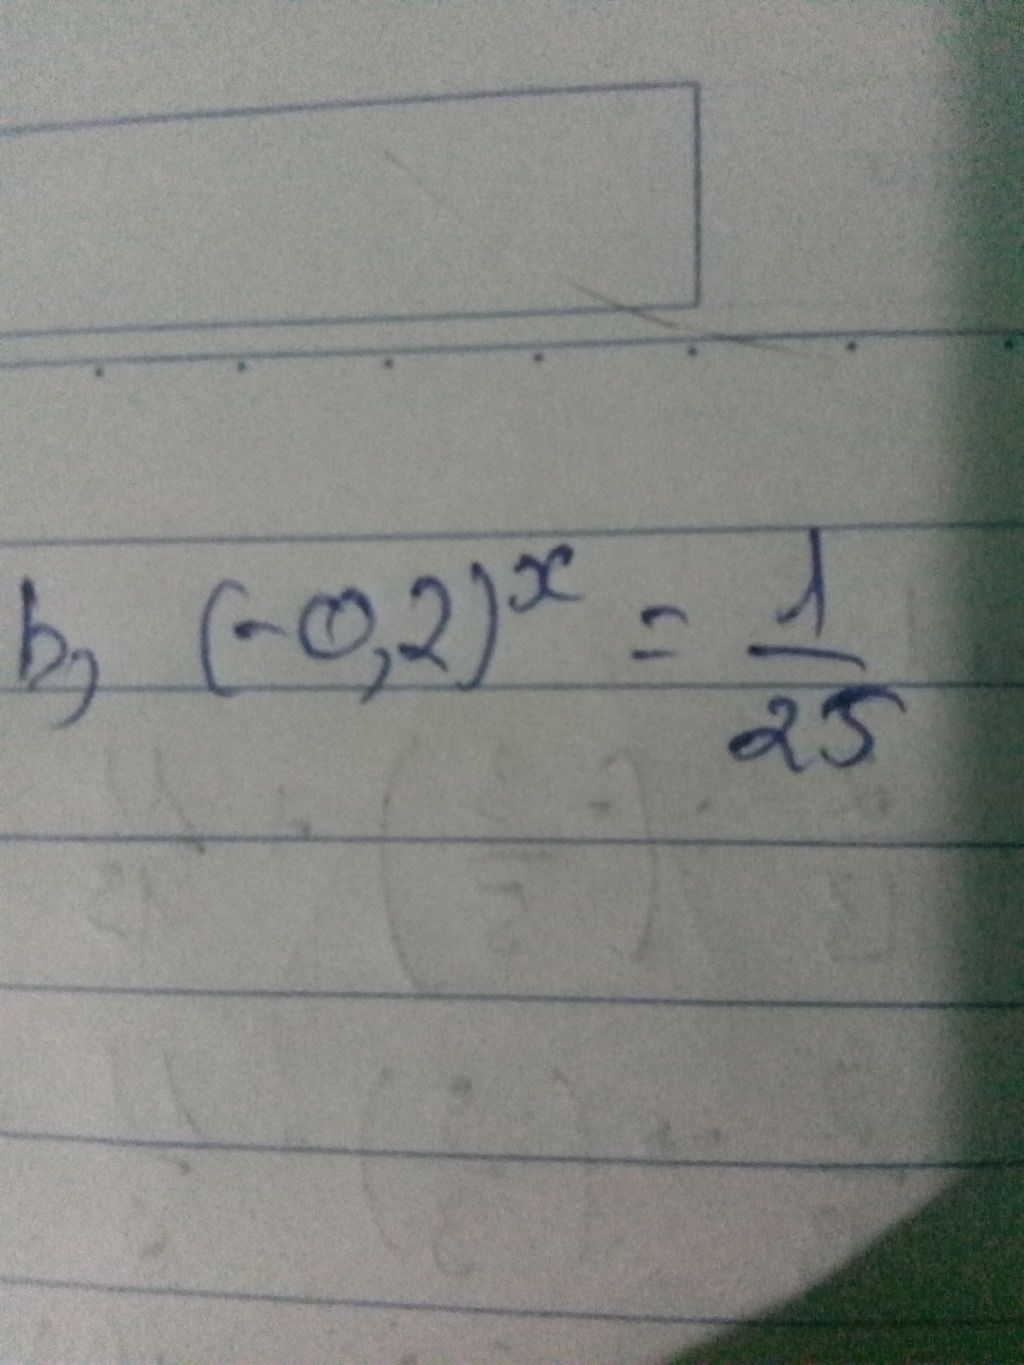 b, (-0,2)^x = 1/25